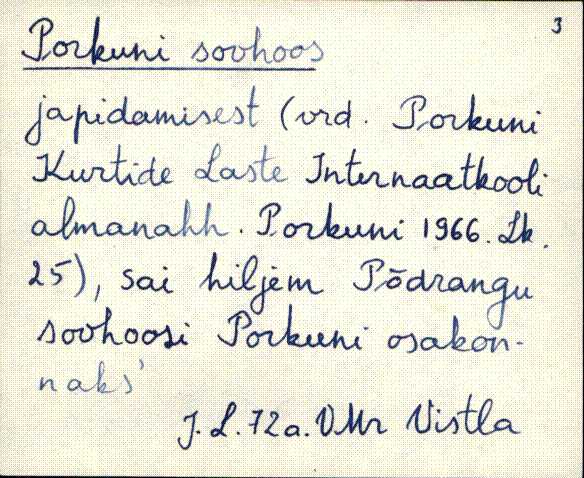 3
Porkuni sovhoos
japidamisest (vrd. Porkuni
Kurtide Laste Internaatkooli
almanahh. Porkuni 1966. Lk.
25), sai hiljem Põdrangu
sovhoosi Porkuni osakon-
naks'
J. L. 72a. VMr Vistla